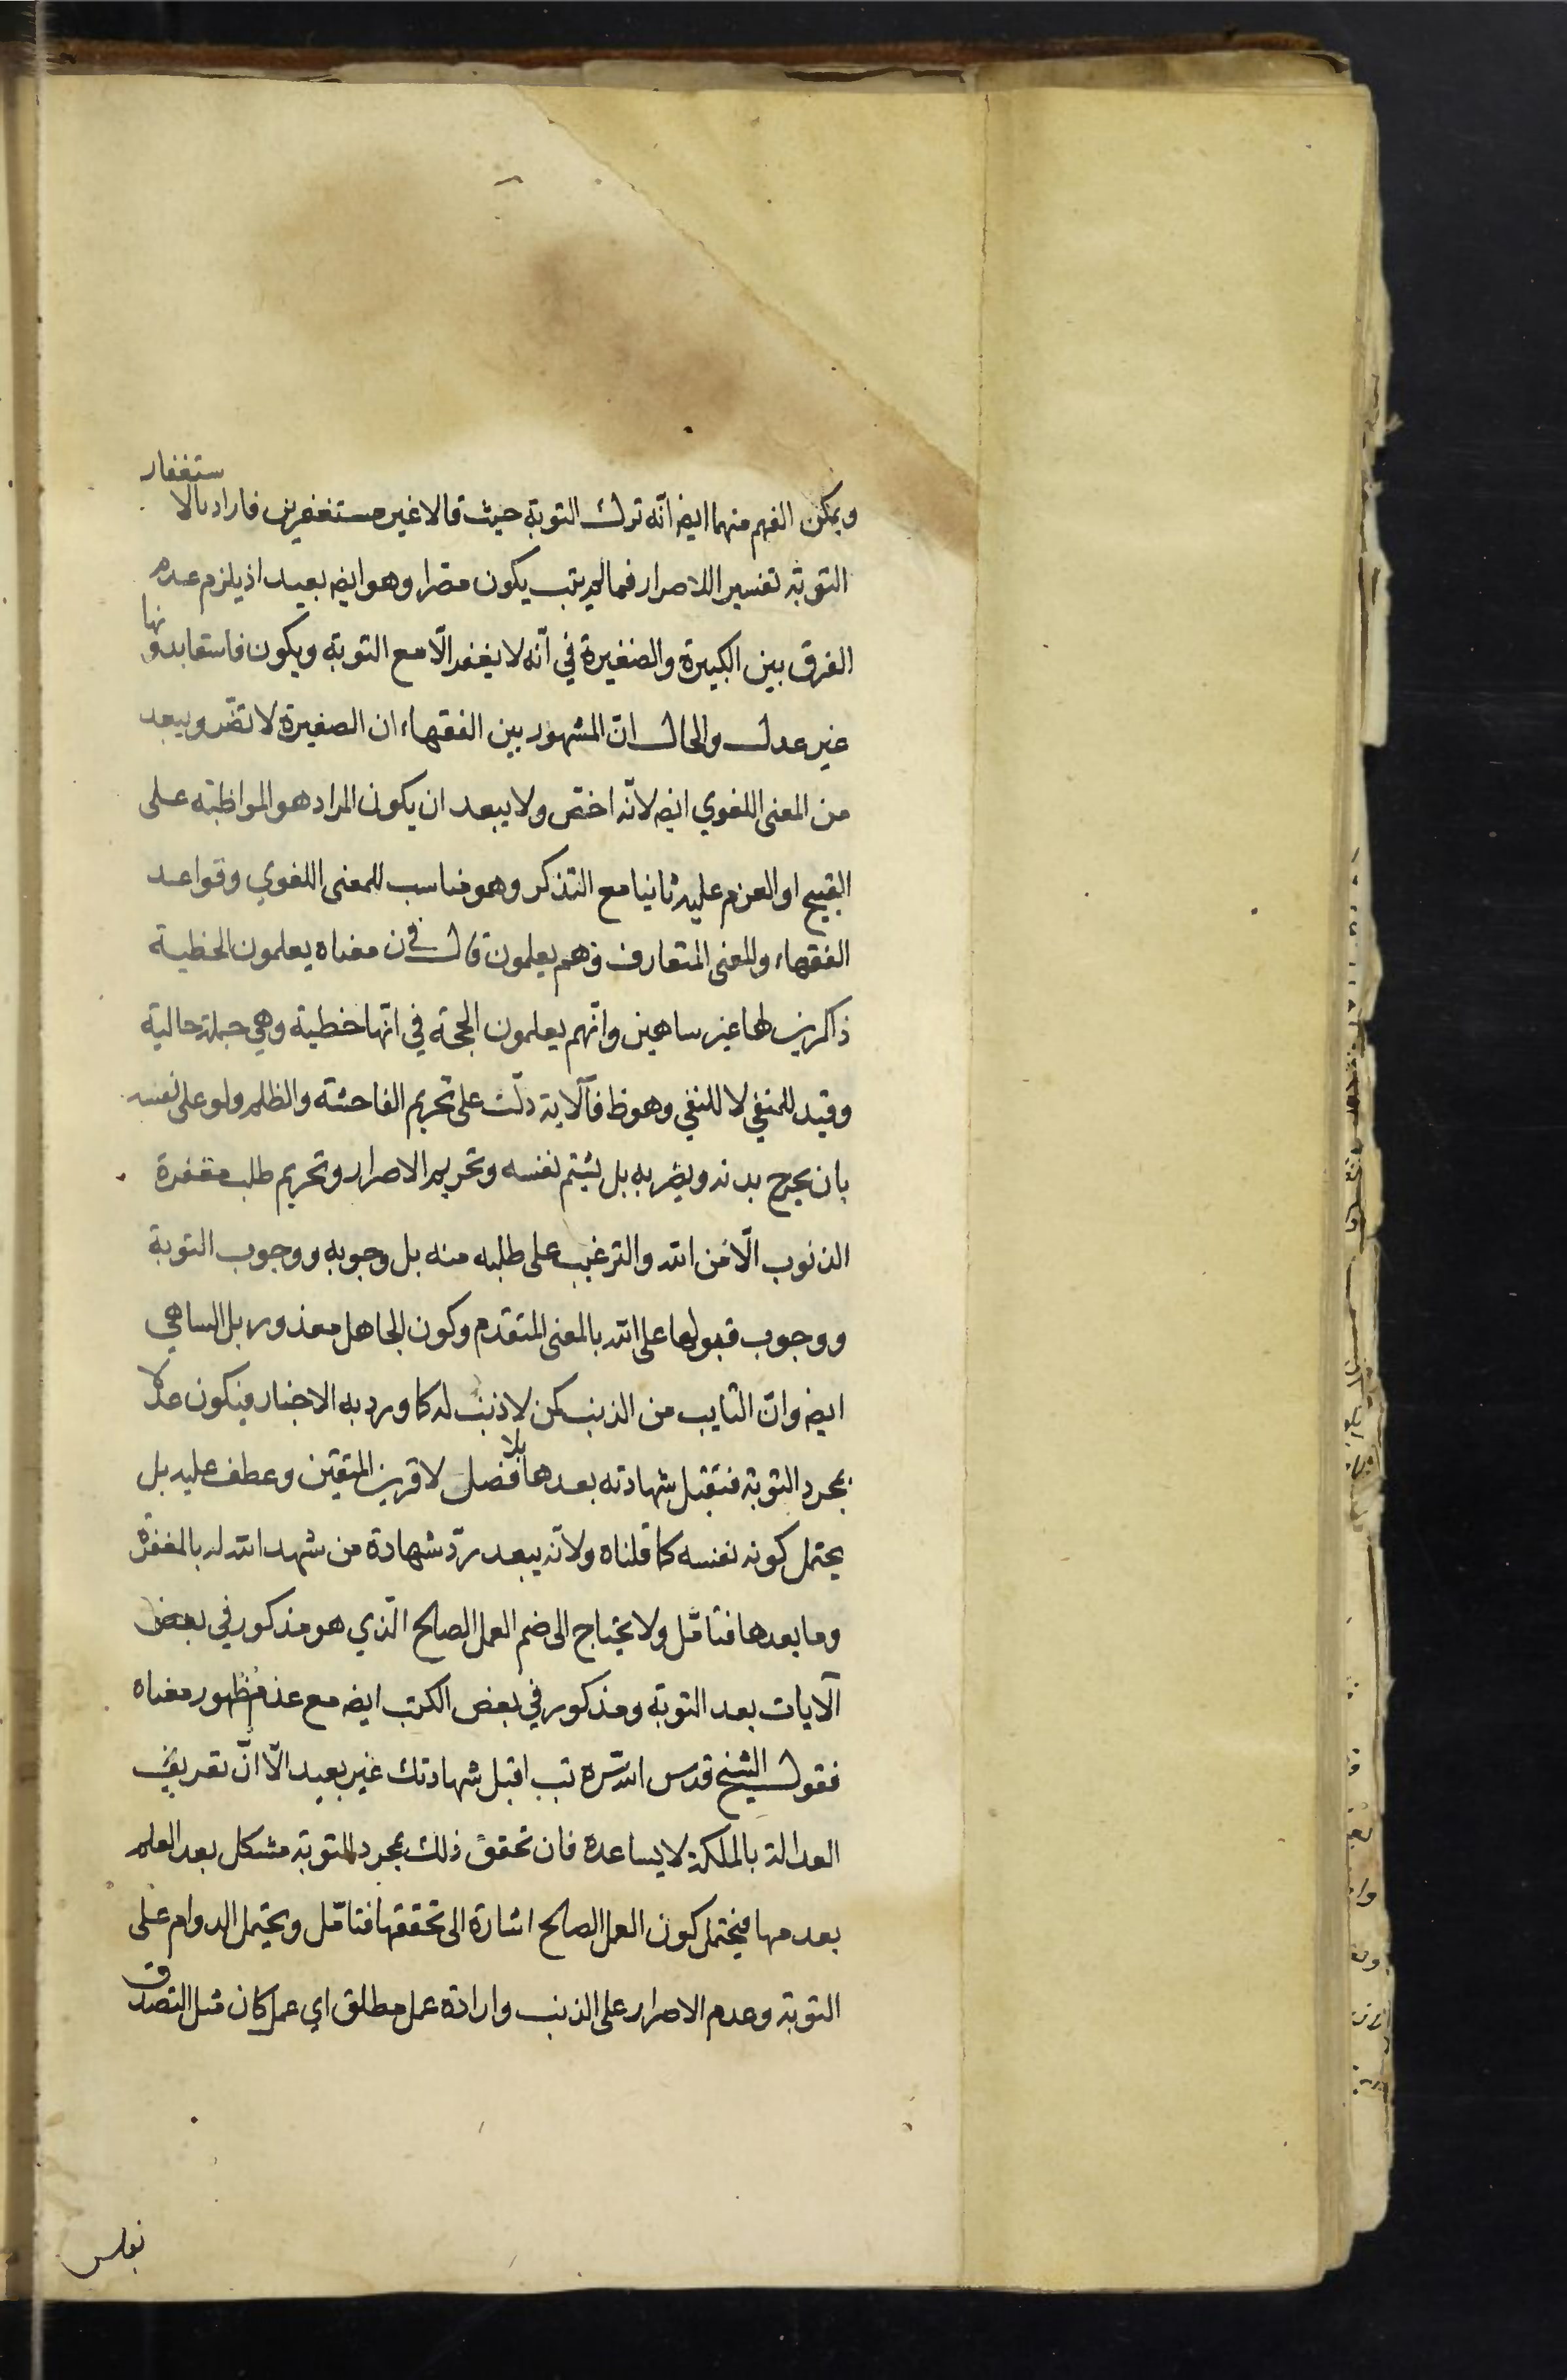 ويمكن الفهم منهما ايض انّه ترك التوبة حيث قالا غير مستغفرين فاراد بالاستغفار
التوبة تفسيرا للاصرار فما لم يتب يكون مصرا وهو ايض بعيد اذ يلزم عدم
الفرق بين الكبيرة والصغيرة في انّه لا يغفر الّا مع التوبة ويكون فاسقا بدونها
غير عدل والحال انّ المشهور بين الفقهاء ان الصغيرة لا تضر ويبعد
من المعنى اللغوي ايض لانّه اخص ولا يبعد ان يكون المراد هو المواظبة على
القبيح او العزم عليه ثانيا مع التذكر وهو مناسب للمعنى اللغوي وقواعد
الفقهاء وللمعنى المتعارف وهم يعلمون قال في ن معناه يعلمون الخطية
ذاكرين لها غير ساهين وانّهم يعلمون الحجة في انّها خطية وهي جملة حالية
وقيد للمنفي لا للنفي وهو ظ فالآية دلّت على تحريم الفاحشة والظلم ولو على نفسه
بان يجرح بدنه ويضر به بل يشتم نفسه وتحريم الاصرار وتحريم طلب مغفرة
الذنوب الّا من الله والترغيب على طلبه منه بل وجوبه ووجوب التوبة
ووجوب قبولها على الله بالمعنى المتقدم وكون الجاهل معذور بل الساهي
ايض وانّ التايب من الذنب كمن لا ذنب له كما ورد به الاخبار فيكون عدلا
بمجرد التوبة فتقبل شهادته بعدها بلا فصل لا قرين المتقين وعطف عليه بل
يحتمل كونه نفسه كما قلناه ولانّه يبعد ردّ شهادة من شهد الله له بالمغفرة
وما بعدها فتامّل ولا يحتاج الى ضم العمل الصالح الّذي هو مذكور في بعض
الآيات بعد التوبة ومذكور في بعض الكتب ايض مع عدم ظهور معناه
فقول الشيخ قدس الله سّره تب اقبل شهادتك غير بعيد الّا انّ تعريف
العدالة بالملكة لا يساعده فان تحقق ذلك بمجرد التوبة مشكل بعد العلم
بعدمها فيحتمل كون العمل الصالح اشارة الى تحققها فتامّل ويحتمل الدوام على
التوبة وعدم الاصرار على الذنب وارادة عمل مطلق اي عمل كان مثل التصدق